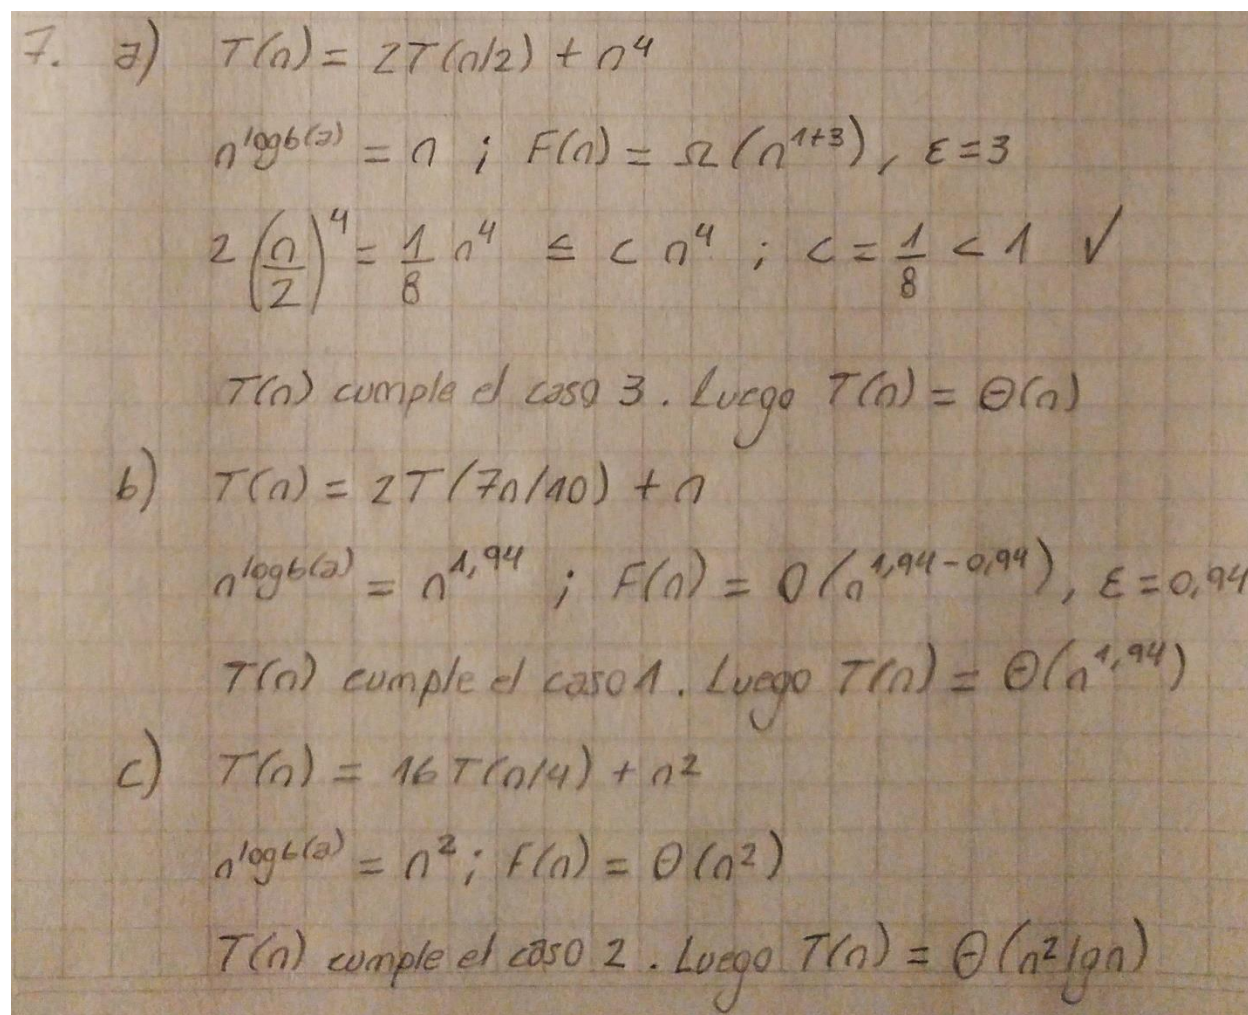 7. a) T(n) = 2T(n/2) + n⁴
n^log b(a) = n ; F(n) = Ω(n^1+3), ε=3
2(n/2)⁴ = 1/8 n⁴ ≤ c n⁴ ; c = 1/8 < 1 ✓
T(n) cumple el caso 3. Luego T(n) = Θ(n)
b) T(n) = 2T(7n/10) + n
n^log b(a) = n^1,94 ; F(n) = O(n^1,94-0,94), ε=0,94
T(n) cumple el caso 1. Luego T(n) = Θ(n^1,94)
c) T(n) = 16T(n/4) + n²
n^log b(a) = n² ; F(n) = Θ(n²)
T(n) cumple el caso 2. Luego T(n) = Θ(n² lgn)